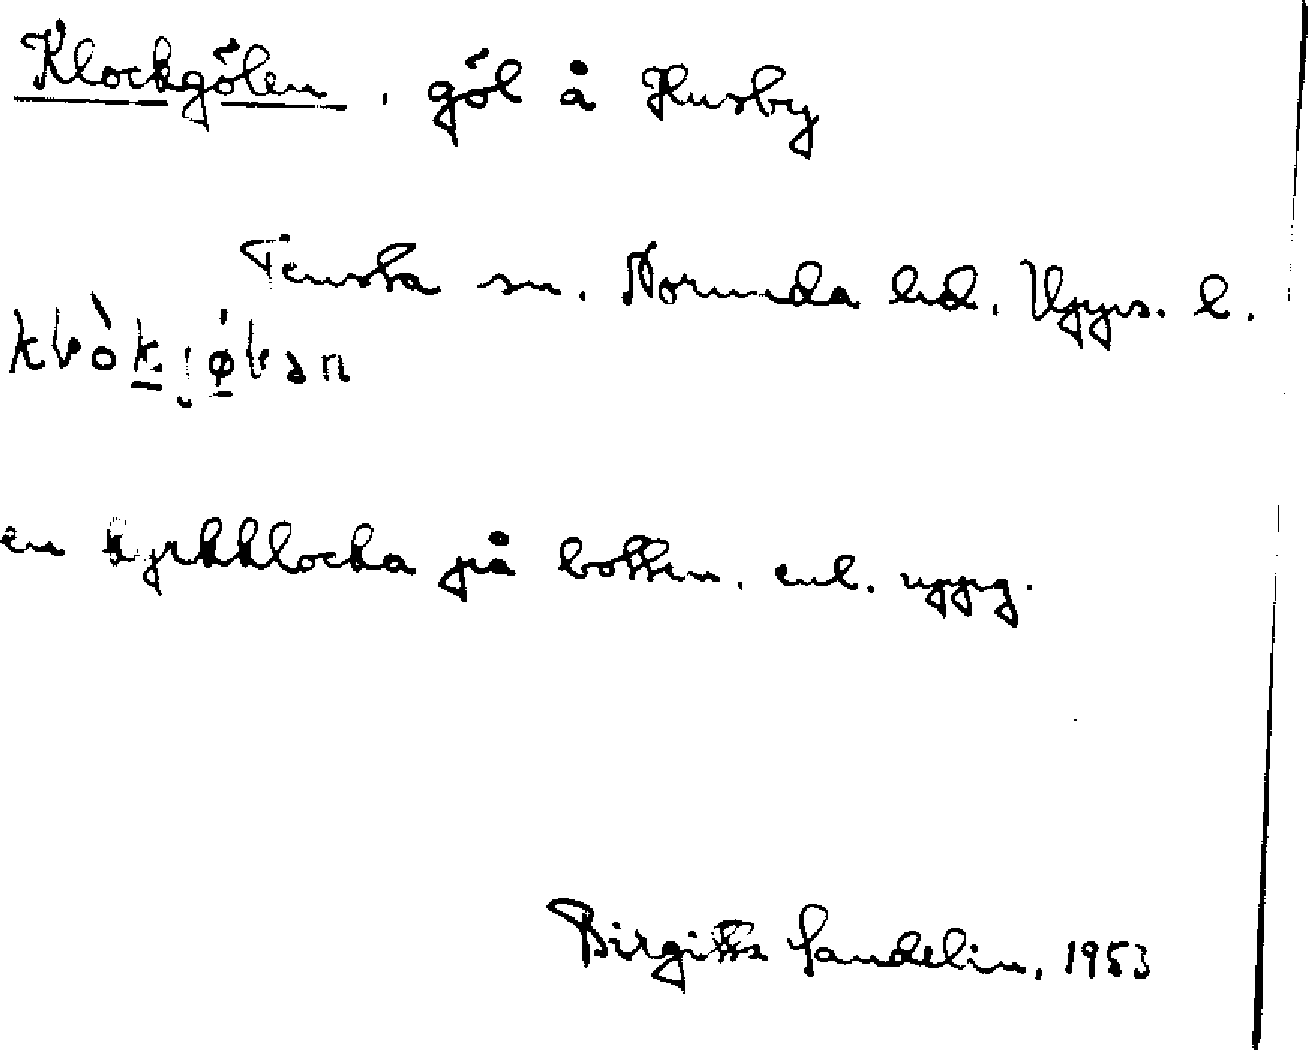 Klockgölen, göl å Husby
Tensta sn. Norunda hd. Upps. l.
en kyrkklocka på botten. enl. uppg.
Birgitta Sandelin, 1953